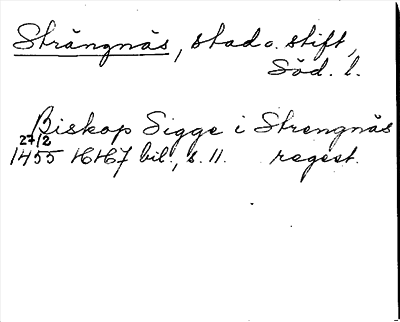 Strängnäs, stad o. stift,
Söd. l.
Biskop Sigge i Strengnäs
27/2
1455 16167 bil., s. 11. regest.